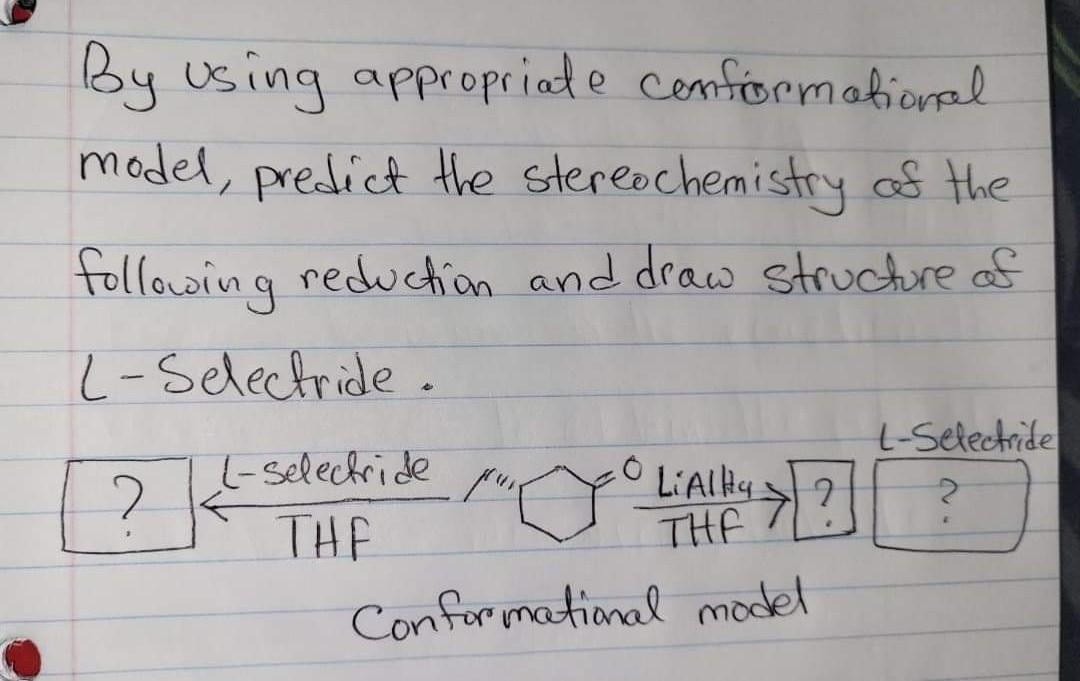 By using appropriate conformational
model, predict the stereochemistry of the
following reduction and draw structure of
L-Selectride.
L-Selectride
? L-selectride THF O LiAlH4 THF ? ?
Conformational model